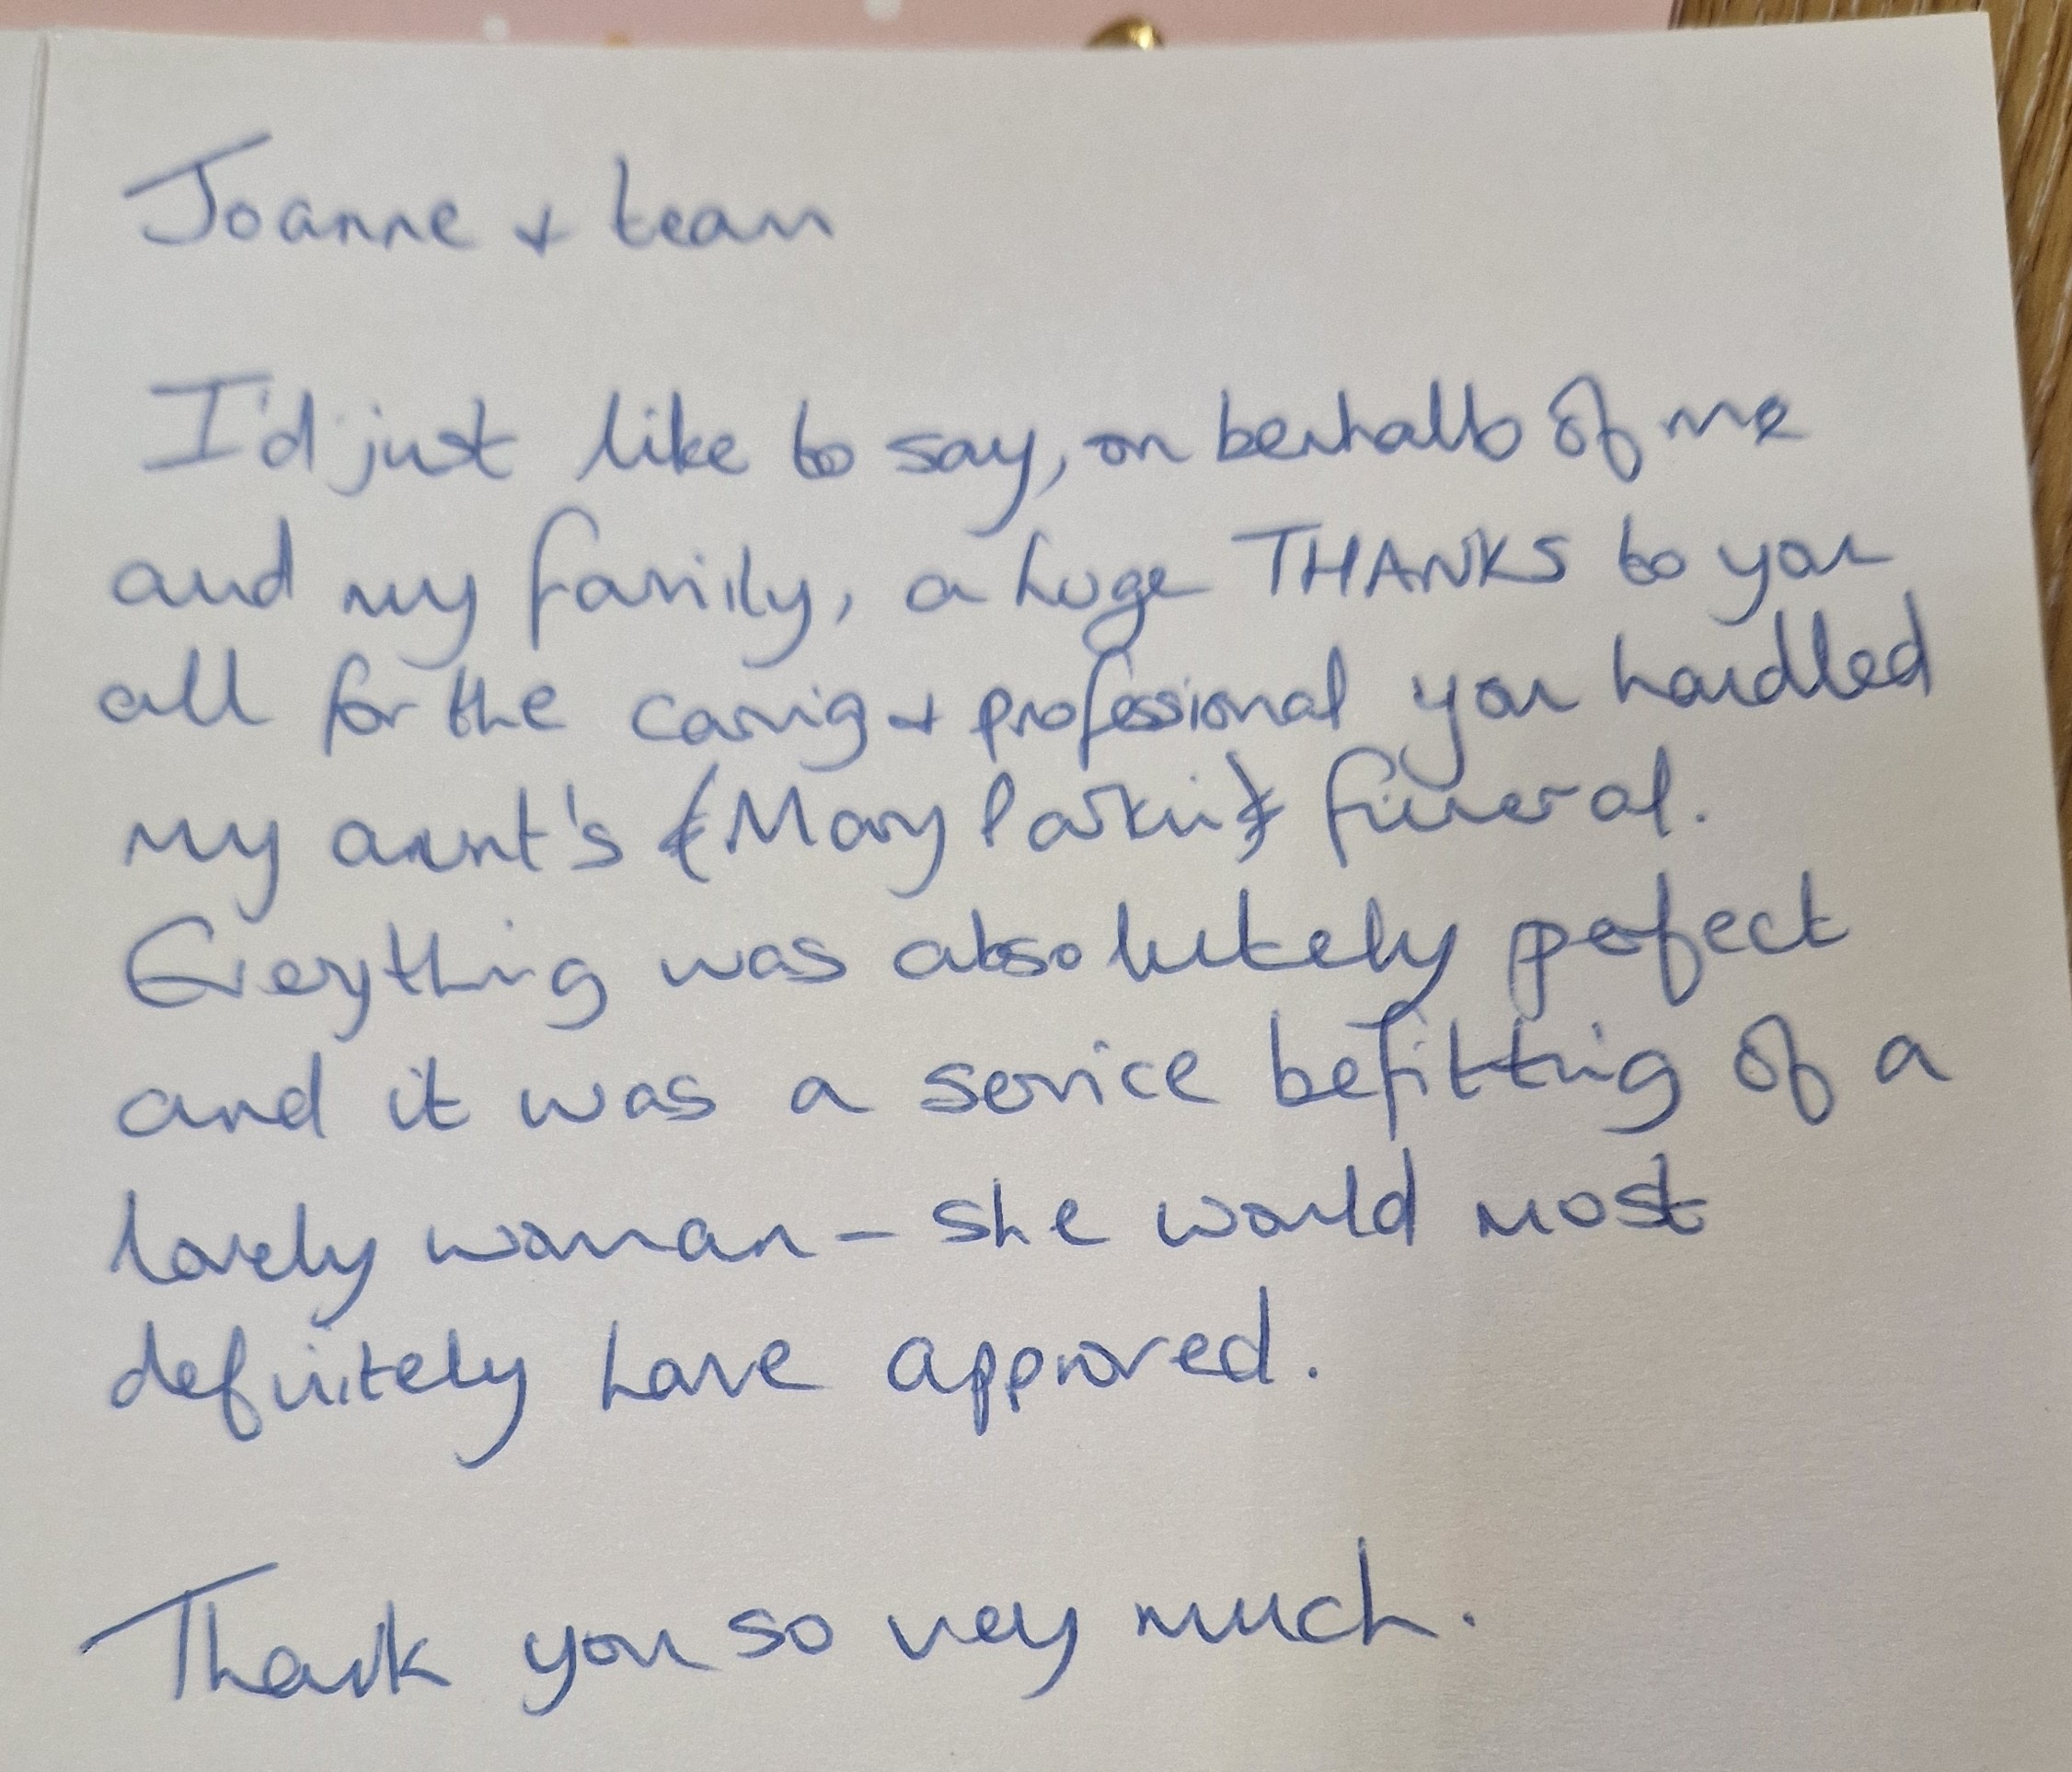 Joanne + team
I'd just like to say, on berhalb of me
and my family, a huge THANKS to you
all for the caring + professional you handled
my aunt's (Mary Parkin) funeral.
Everything was absolutely perfect
and it was a service befitting of a
lovely woman - she would most
definitely have approved.
Thank you so very much.